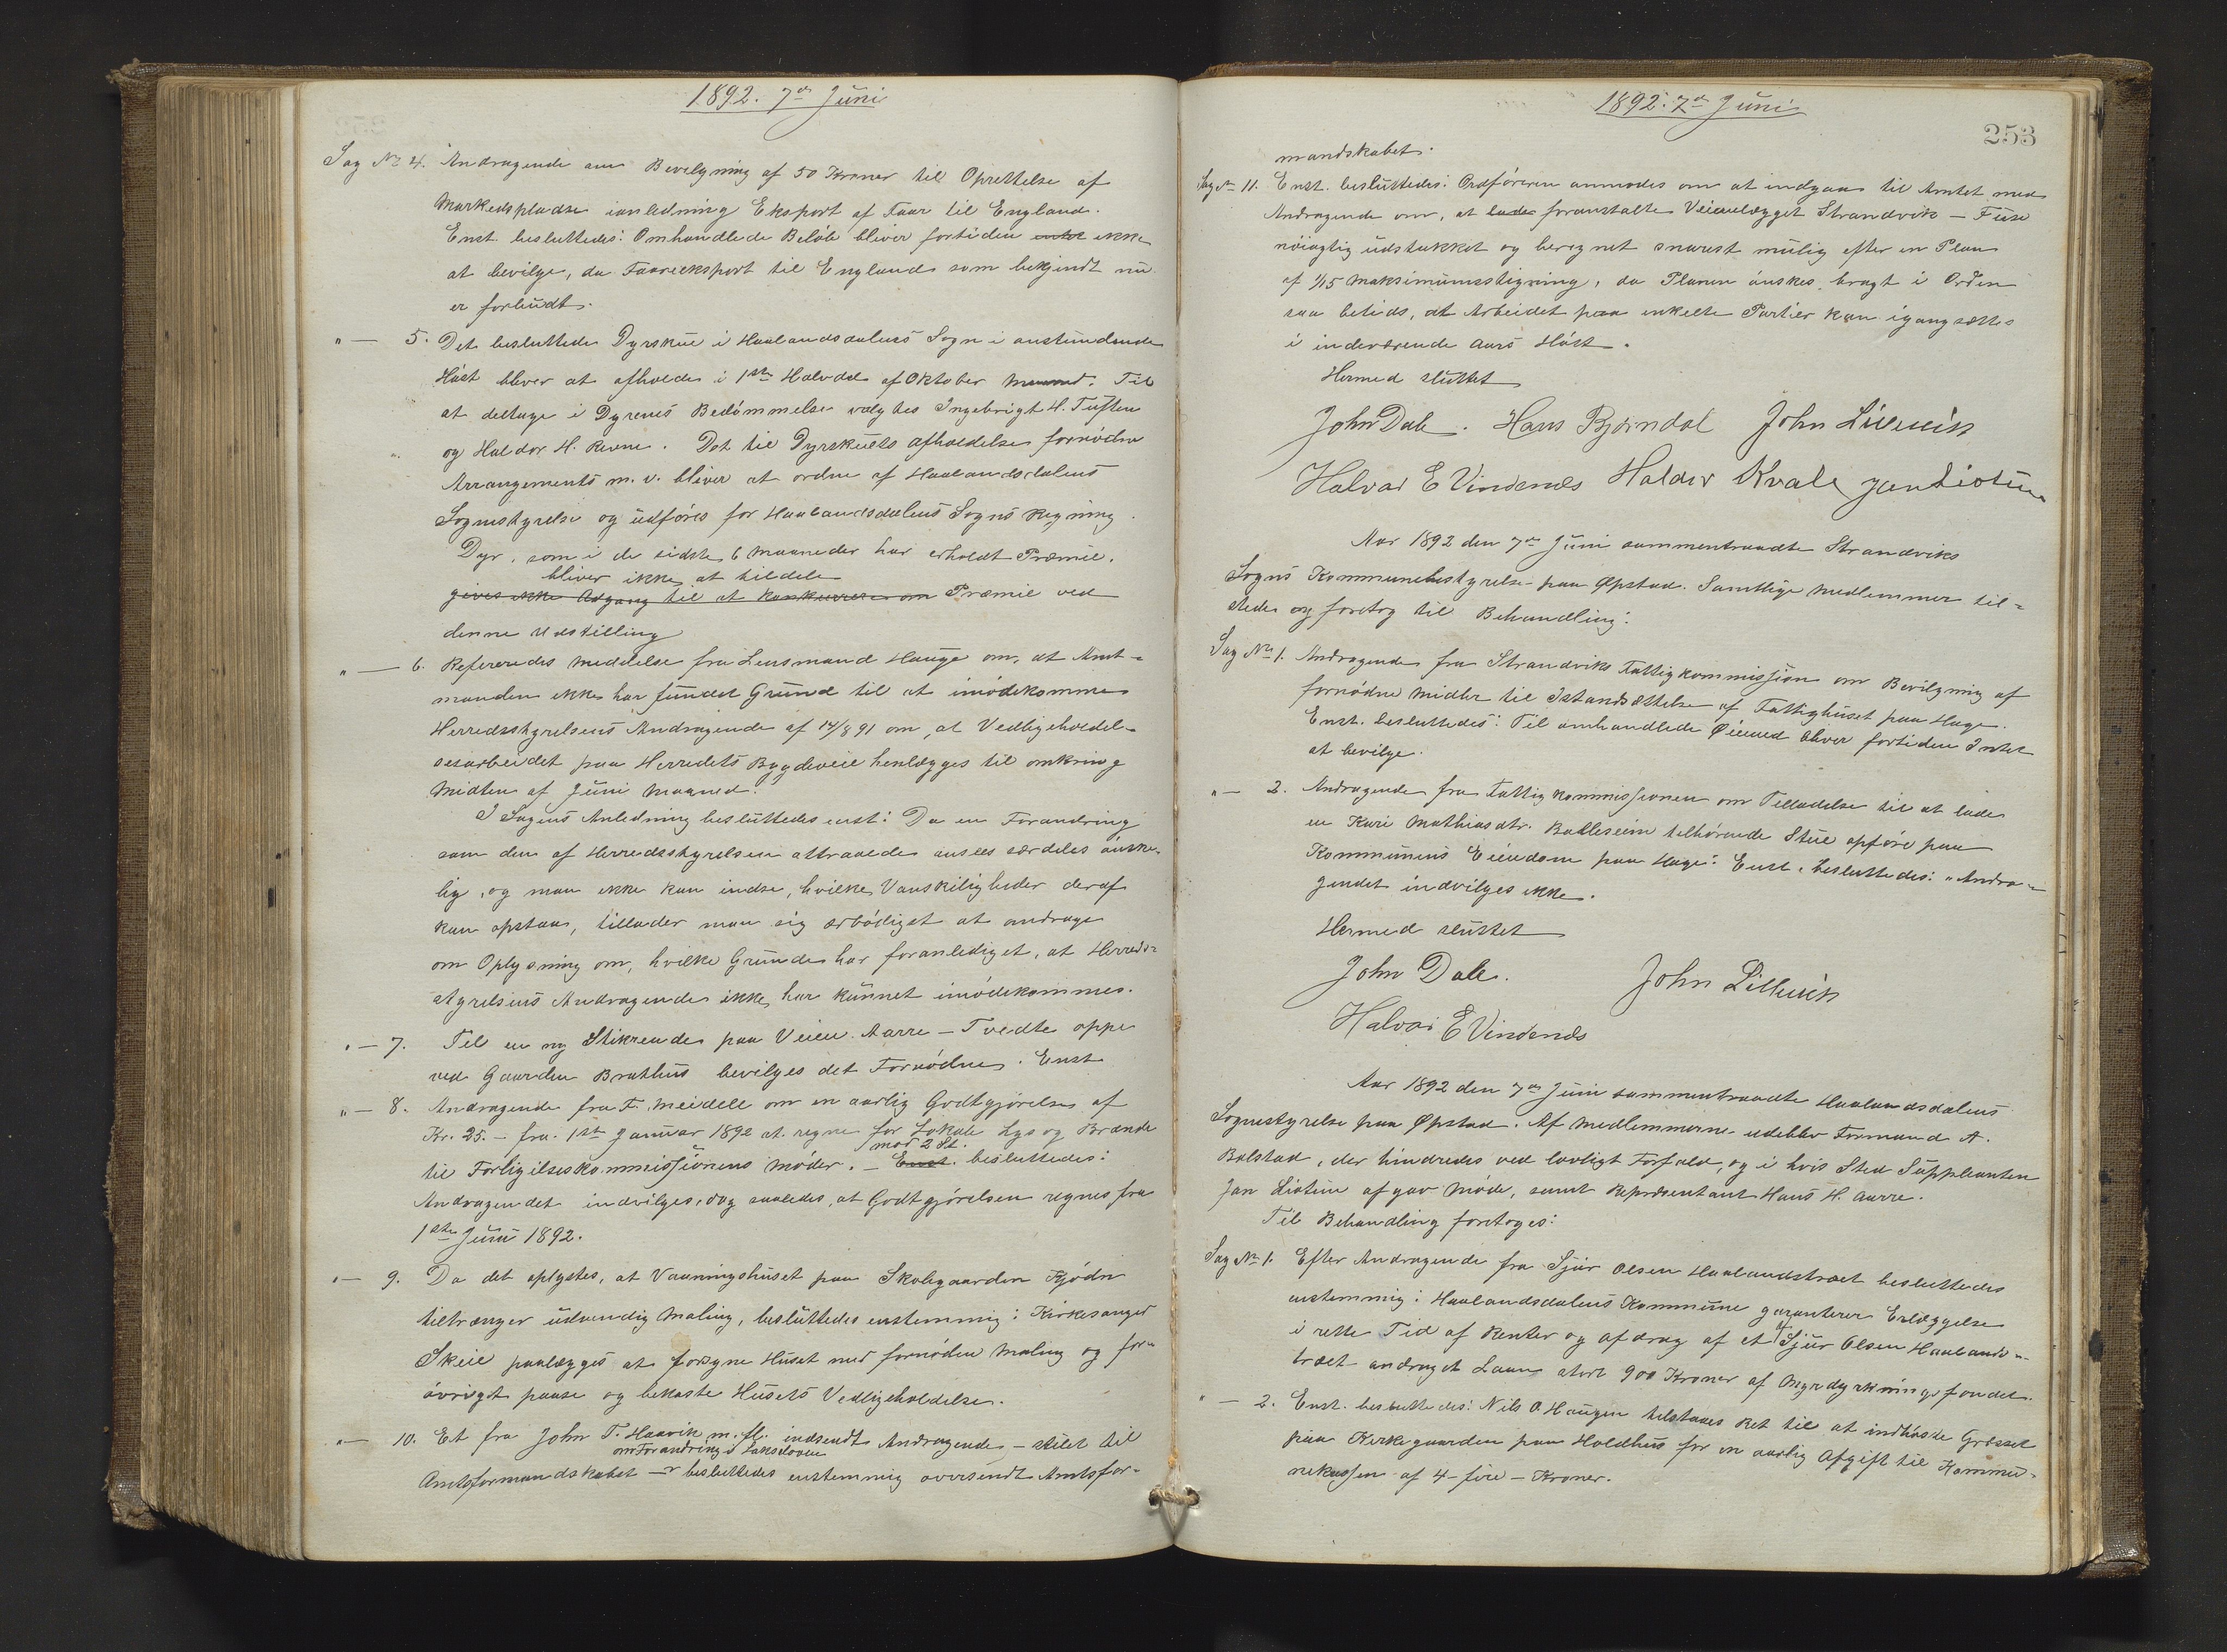 1892. 7de Juni
Sag No 4. Andragende om Bevilgning af 50 Kroner til Oprettelse af
Markedspladse ianledning Eksport af Faar til England.
Enst. besluttedes: Omhandlede Beløb bliver fortiden intet ikke
at bevilge, da Faareeksport til England som bekjendt nu
er forbudt.
" — 5. Det besluttede Dyrskue i Haalandsdalens Sogn i anstundende
Høst bliver at afholde i 1ste Halvdel af Oktober Maaned. Til
at deltage i Dyrenes Bedømmelse valgtes Ingebrigt H. Tuften
og Haldor H. Revne. Det til Dyrskuets Afholdelse fornødne
Arrangements m. v. bliver at ordne af Haalandsdalens
Sognestyrelse og udføres for Haalandsdalens Sogns Regning.
Dyr, som i de sidste 6 Maaneder har erholdt Præmie,
bliver ikke at tildele
gives ikke Adgang til at konkurrere om Præmie ved
denne Udstilling
" — 6. Refereredes Meddelelse fra Lensmand Hauge om, at Amt-
manden ikke har fundet Grund til at imødekomme
Herredsstyrelsens Andragende af 14/8 91 om, at Vedligeholdel-
sesarbeidet paa Herredets Bygdeveie henlægges til omkring
Midten af Juni Maaned.
I Sagens Anledning besluttedes enst: Da en Forandring
som den af Herredsstyrelsen attraaede ansees særdeles ønske-
lig, og man ikke kan indse, hvilke Vanskeligheder deraf
kan opstaa, tillader man sig ærbødigst at andrage
om Oplysning om, hvilke Grunde har foranlediget, at Herreds-
styrelsens Andragende ikke har kunnet imødekommes.
" — 7. Til en ny Stikrende paa Veien Aarre – Tvedte oppe
ved Gaarden Brathus bevilges det Fornødne. Enst
" — 8. Andragende fra F. Meidell om en aarlig Godtgjørelse af
Kr. 25.– fra 1ste Januar 1892 at regne for Lokale Lys og Brænde
mod 2 St.
til Forligelseskommissionens Møder. – Enst. besluttedes:
Andragendet indvilges, dog saaledes, at Godtgjørelsen regnes fra
1ste Juni 1892.
" — 9. Da det oplystes, at Vaaningshuset paa Skolegaarden Kjødn
tiltrænger udvendig Maling, besluttedes enstemmig: Kirkesanger
Skeie paalægges at forsyne Huset med fornøden Maling og for-
øvrigt paase og bekoste Husets Vedligeholdelse.
" — 10. Et fra John T. Haavik m. fl. indsendt Andragende – stilet til
om Forandring i Lakseloven
Amtsformandskabet – besluttedes enstemmig oversendt Amtsfor-
1892. 7de Juni
253
mandskabet.
Sag No 11. Enst. besluttedes: Ordføreren anmodes om at indgaa til Amtet med
Andragende om, at lade foranstalte Veianlægget Strandvik – Fuse
nøiagtig udstukket og beregnet snarest mulig efter en Plan
af 1/15 Maksimumsstigning, da Planen ønskes bragt i Orden
saa betids, at Arbeidet paa enkelte Partier kan igangsættes
i indeværende Aars Høst.
Hermed sluttet
John Dale. Hans Bjørndal John Lillevik
Halvar E Vindenes Haldor Kvale Jan Liotun
Aar 1892 den 7de Juni sammentraadte Strandviks
Sogns Kommunebestyrelse paa Øpstad. Samtlige Medlemmer til-
stede og foretog til Behandling:
Sag No 1. Andragende fra Strandviks Fattigkommission om Bevilgning af
fornødne Midler til Istandsættelse af Fattighuset paa Hage.
Enst. besluttedes: Til omhandlede Øiemed bliver fortiden Intet
at bevilge.
" — 2. Andragende fra Fattigkommissionen om Tilladelse til at lade
en Kari Mathiasdtr. Balleseim tilhørende Stue opføre paa
Kommunens Eiendom paa Hage: Enst. besluttedes: "Andra-
gendet indvilges ikke.
Hermed sluttet
John Dale. John Lillevik
Halvar E Vindenes
Aar 1892 den 7de Juni sammentraadte Haalandsdalens
Sognestyrelse paa Øpstad. Af Medlemmerne udeblev Formand A.
Bolstad, der hindredes ved lovligt Forfald, og i hvis Sted Suppleanten
Jan Liotun afgav Møde, samt Repræsentant Hans H. Aarre.
Til Behandling foretoges:
Sag No 1. Efter Andragende fra Sjur Olsen Haalandstræet besluttedes
enstemmig: Haalandsdalens Kommune garanterer Erlæggelse
i rette Tid af Renter og Afdrag af et Sjur Olsen Haalands-
træet andraget Laan stort 900 Kroner af Myrdyrkningsfondet.
" — 2. Enst. besluttedes: Nils O. Haugen tilstaaes Ret til at indhøste Græsset
paa Kirkegaarden paa Holdhus for en aarlig Afgift til Kommu-
nekassen af 4 – fire – Kroner.